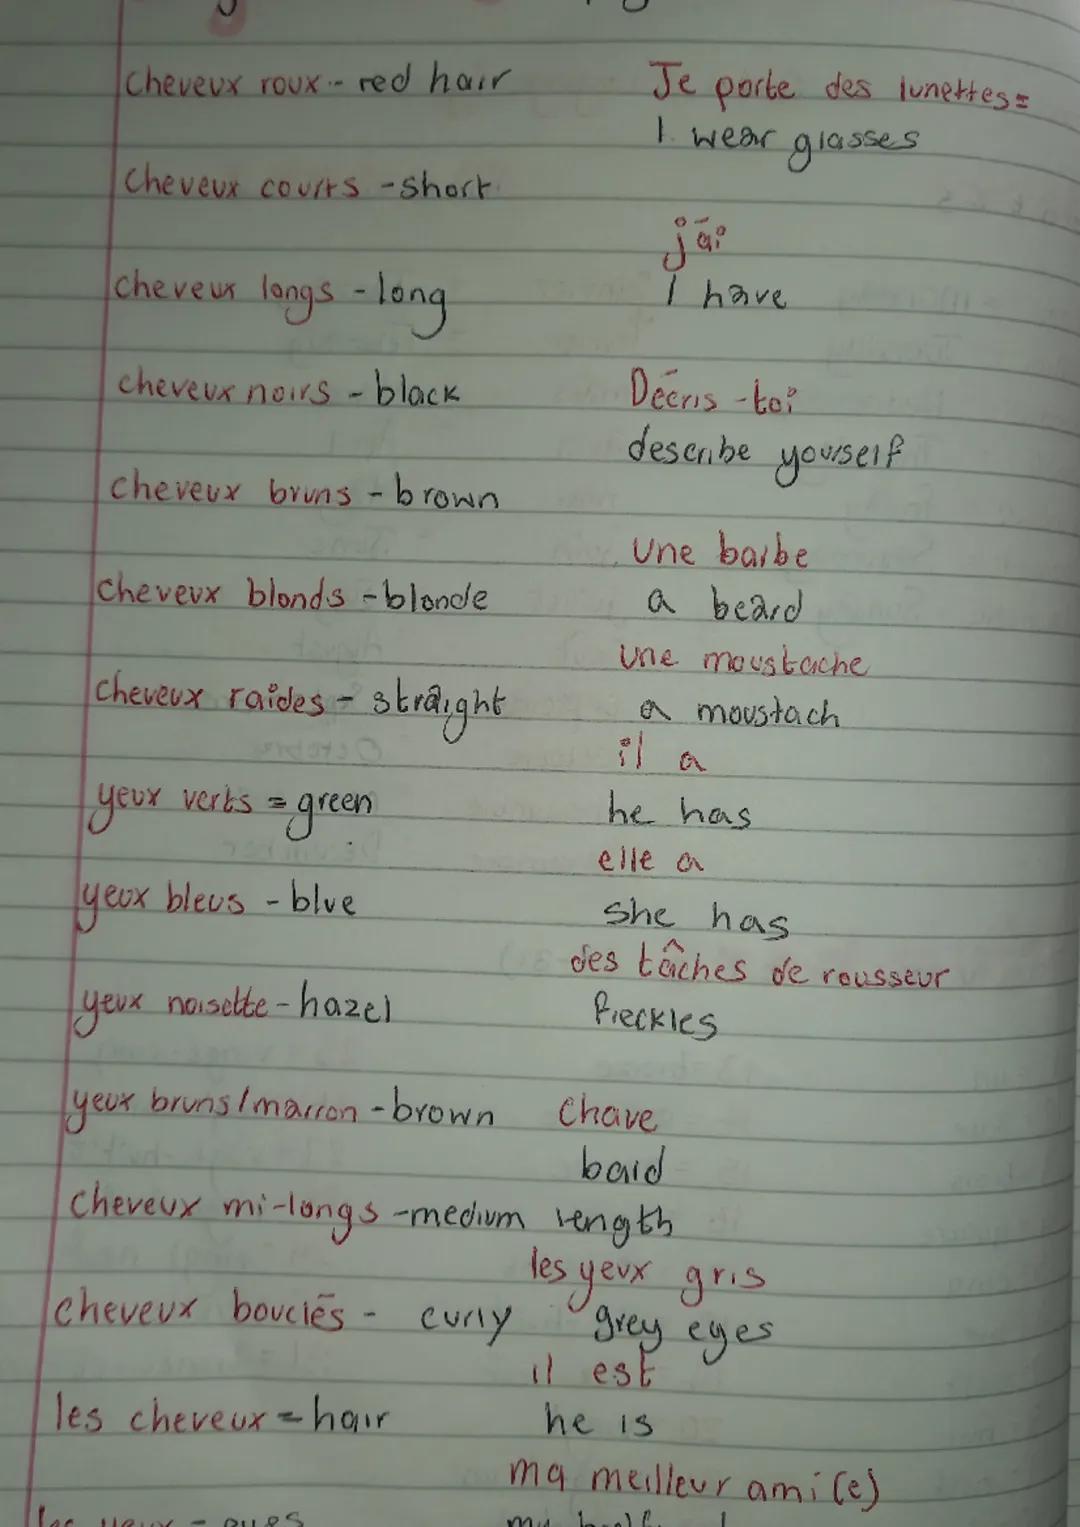 cheveux roux - red hair
cheveux courts - short
cheveux longs - long
cheveux noirs - black
cheveux bruns - brown
cheveux blonds - blonde
cheveux raides - straight
yeux verts = green
yeux bleus - blue
yeux noisette - hazel
yeux bruns/marron - brown
cheveux mi-longs - medium length
cheveux bouclēs - curly
les cheveux = hair
les yeux - eyes
Je porte des lunettes =
I wear glasses
j'ai
I have
Dēcris-toi
describe yourself
une barbe
a beard
une moustache
a moustach
il a
he has
elle a
she has
des tâches de rousseur
freckles
Chave
bald
les yeux gris
grey eyes
il est
he is
ma meilleur ami(e)
my